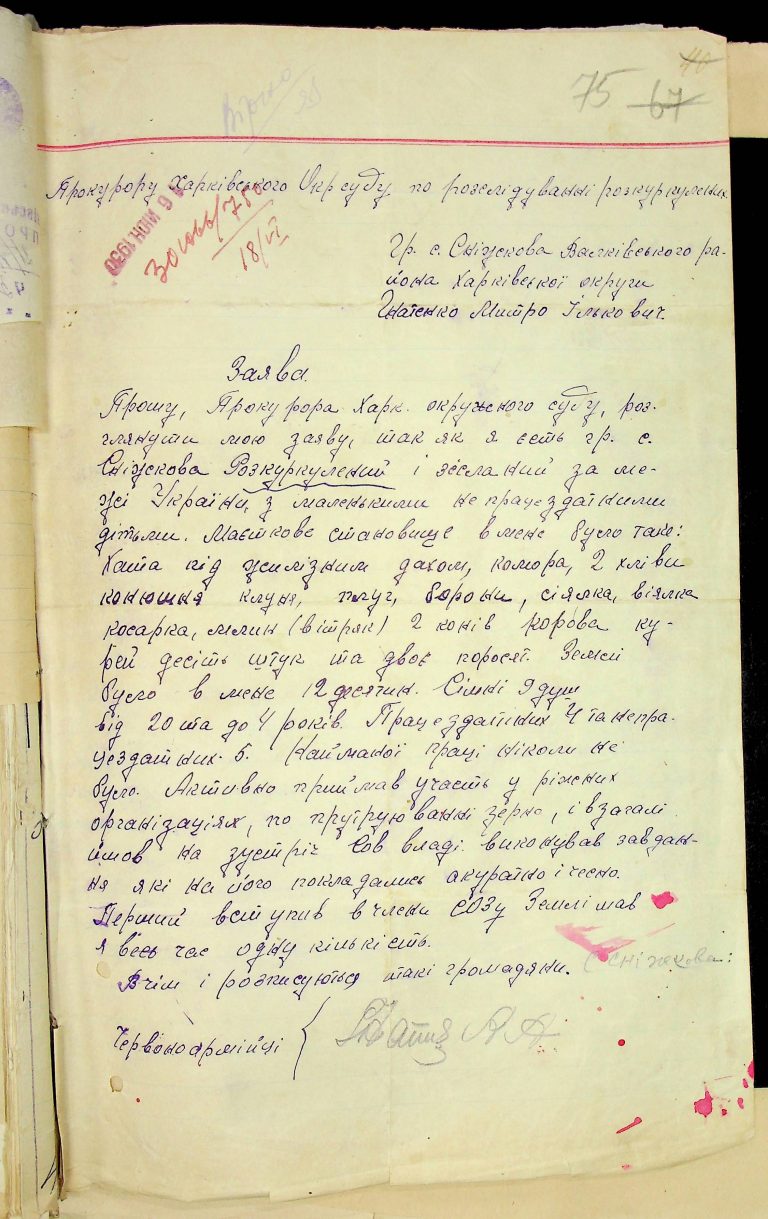 75 67
Прокурору Харківського Окрсуду по розслідуванні розкуркулених
6 ИЮН 1930
18/VI
Гр. с. Сніжкова Валківського ра-
йона Харківської округи
Гнатенко Митро Ількович.
Заява.
Прошу, Прокурора Харк. окружного суду, роз-
глянути мою заяву, так як я єсть гр. с.
Сніжкова Розкуркулений і зісланий за ме-
жі України, з маленькими непрацездатними
дітьми. Маєткове становище в мене було таке:
Хата під желізним дахом, комора, 2 хліви
конюшня клуня, плуг, борони, сіялка, віялка
косарка, млин (вітряк) 2 коней корова ку-
рей десіть штук та двоє поросят. Землі
було в мене 12 десятин. Сімні 9 душ
від 20 та до 4 років. Працездатних 4 та непра-
цездатних 5. Найманої праці ніколи не
було. Активно приймав участь у ріжних
організаціях, по трусіюванні зерно, і взагалі
йшов на зустріч Сов владі. виконував завдан-
ня які на його покладались акуратно і чесно.
Перший вступив в члени СОЗу Землі мав
я весь час одну кількість.
В чім і розписуються такі громадяни. с Сніжкова:
Червоноармійці {